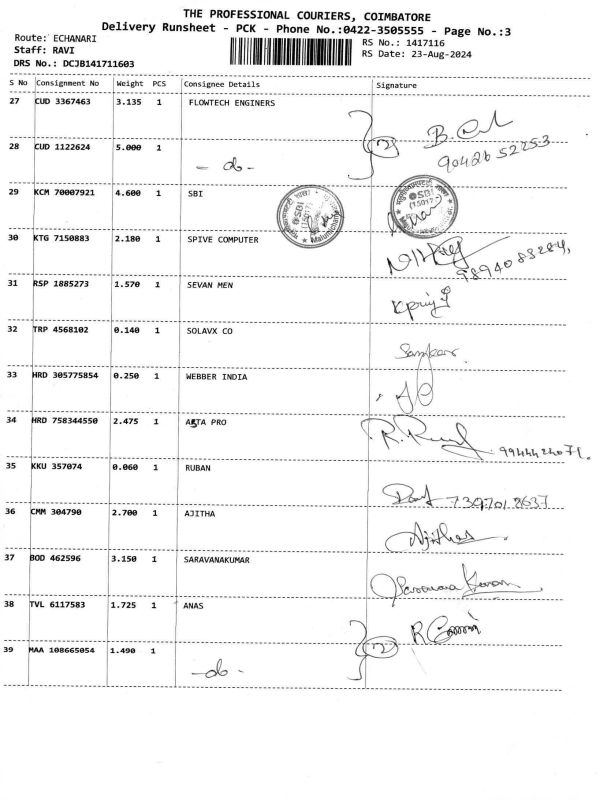 THE PROFESSIONAL COURIERS, COIMBATORE
Delivery Runsheet - PCK - Phone No.:0422-3505555 - Page No.:3
Route: ECHANARI
RS No.: 1417116
Staff: RAVI
RS Date: 23-Aug-2024
DRS No.: DCJB141711603
S No Consignment No Weight PCS Consignee Details Signature
27 CUD 3367463 3.135 1 FLOWTECH ENGINERS
28 CUD 1122624 5.000 1 - do - 2
90426 52253
29 KCM 70007921 4.600 1 SBI
SBI
30 KTG 7150883 2.180 1 SPIVE COMPUTER
9894083284,
31 RSP 1885273 1.570 1 SEVAN MEN
32 TRP 4568102 0.140 1 SOLAVX CO
33 HRD 305775854 0.250 1 WEBBER INDIA
34 HRD 758344550 2.475 1 ASTA PRO
35 KKU 357074 0.060 1 RUBAN
7397012637
36 CMM 304790 2.700 1 AJITHA
Ajitha
37 BOD 462596 3.150 1 SARAVANAKUMAR
38 TVL 6117583 1.725 1 ANAS
39 MAA 108665054 1.490 1 - do - 2